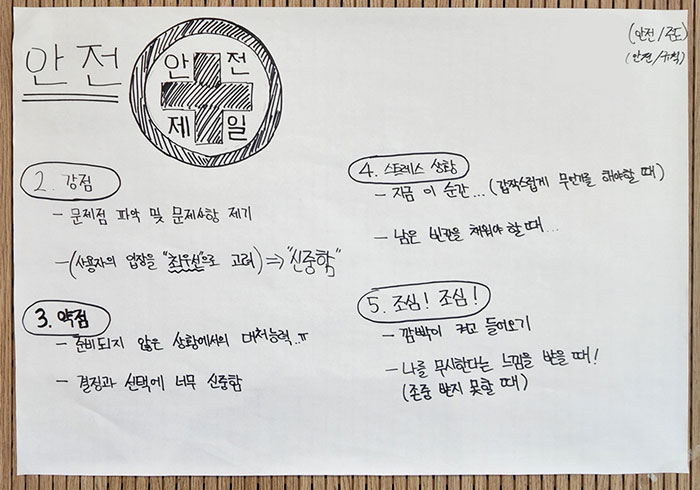 안전
안 전
제 일
(안전/검도)
(안전/규칙)
2. 강점
- 문제점 파악 및 문제사항 제기
- (사용자의 입장을 "최우선"으로 고려) ⇒ "신중함"
3. 약점
- 준비되지 않은 상황에서의 대처능력..ㅠ
- 결정과 선택에 너무 신중함
4. 스트레스 상황
- 지금 이 순간... (갑작스럽게 무언가를 해야할 때)
- 남은 빈칸을 채워야 할 때...
5. 조심! 조심!
- 깜빡이 켜고 들어오기
- 나를 무시한다는 느낌을 받을 때!
(존중 받지 못할 때)